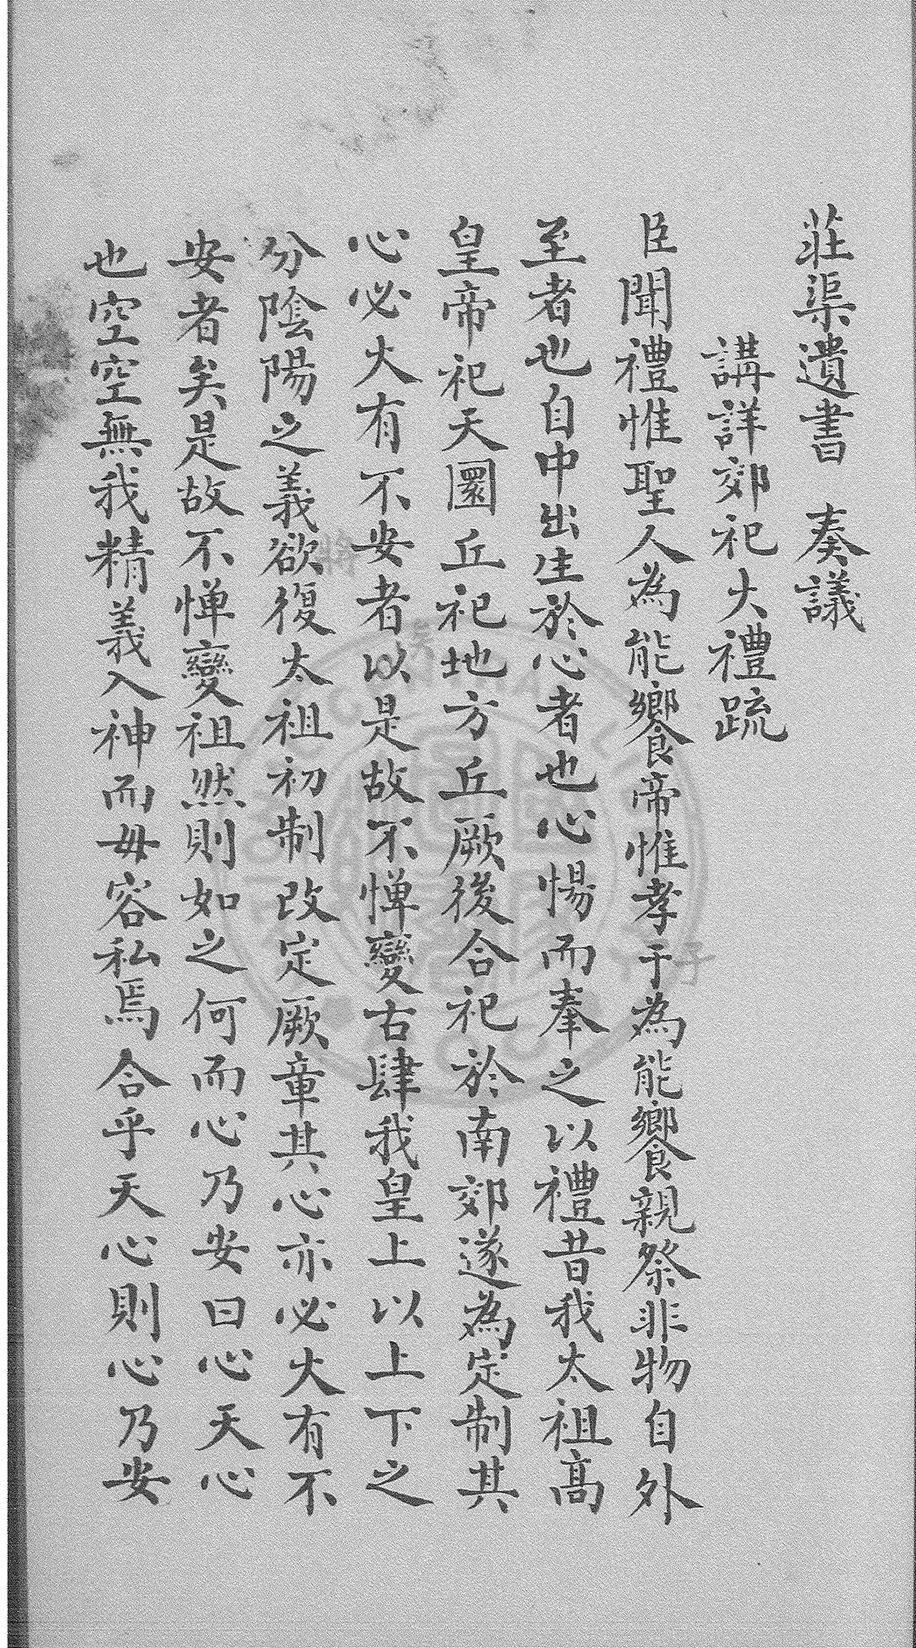 莊渠遺書　奏議
講詳郊祀大禮疏
臣聞禮惟聖人為能饗帝惟孝子為能饗親祭非物自外
至者也自中出生於心者也心惕而奉之以禮昔我太祖高
皇帝祀天圜丘祀地方丘厥後合祀於南郊遂為定制其
心必大有不安者以是故不憚變古肆我皇上以上下之
分陰陽之義欲復太祖初制改定厥章其心亦必大有不
安者矣是故不憚變祖然則如之何而心乃安曰心天心
也空空無我精義入神而毋容私焉合乎天心則心乃安
將
子